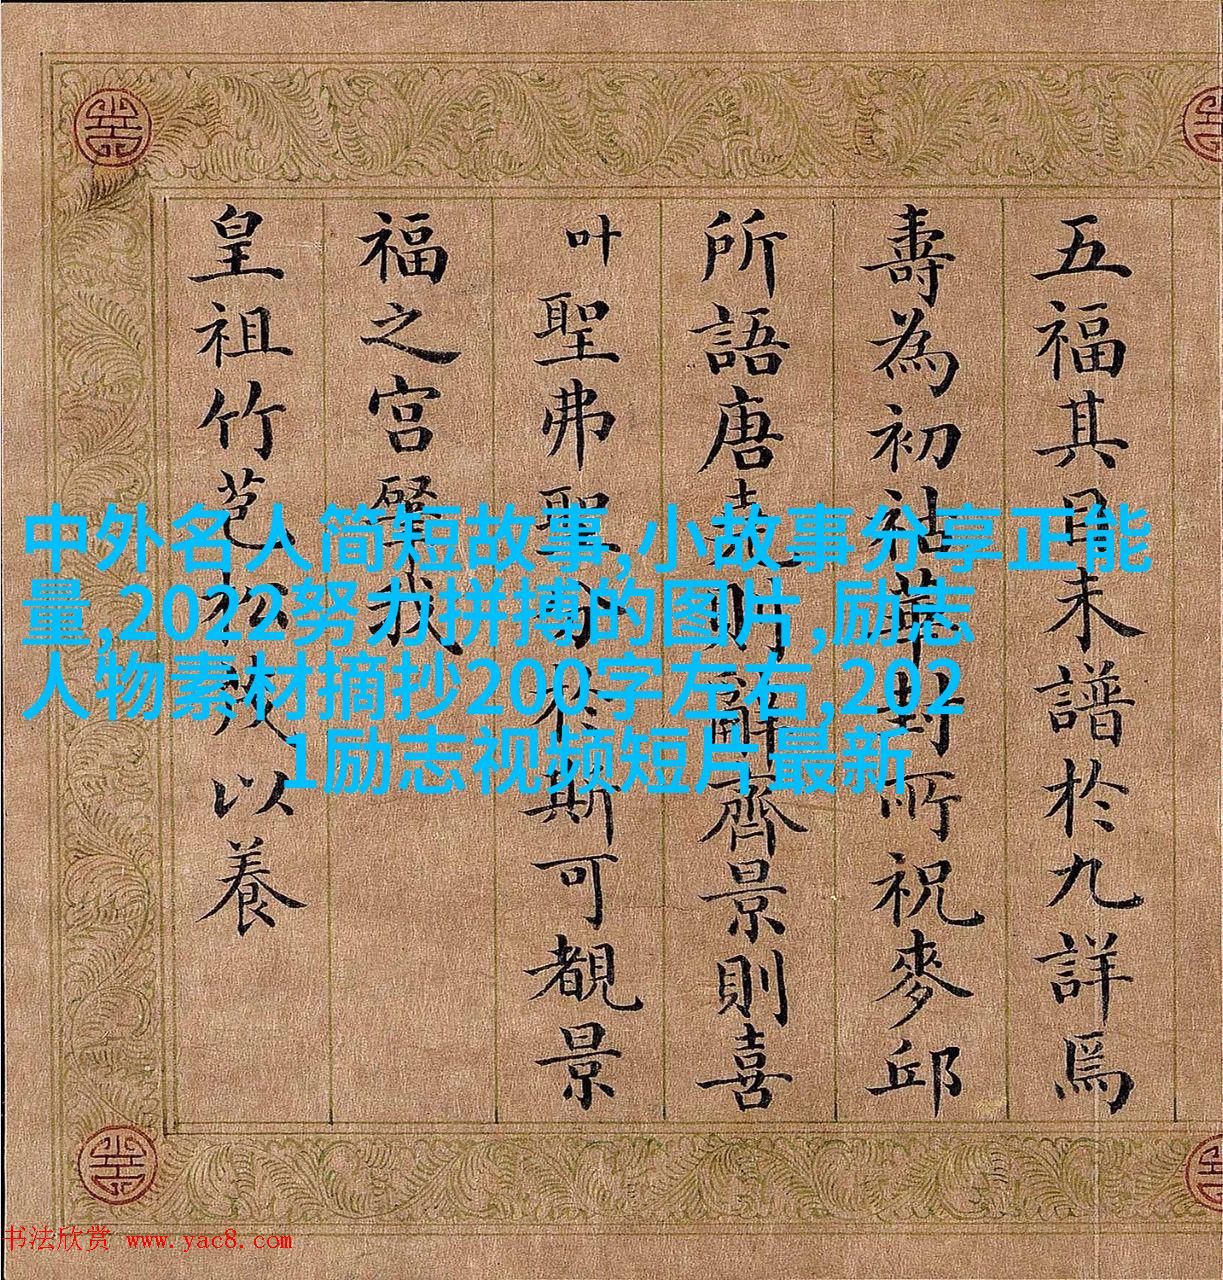 五福其目未譜於九詳焉
壽為初祉華封所祝麥邱
所語唐堯則辭齊景則喜
叶聖弗聖於斯可覩景
福之宮肇我
皇祖竹苞松茂以養
中外名人简短故事,小故事分享正能
量,2022努力拼搏的图片,励志
人物素材摘抄200字左右,202
1励志视频短片最新
书法欣赏 www.yac8.com